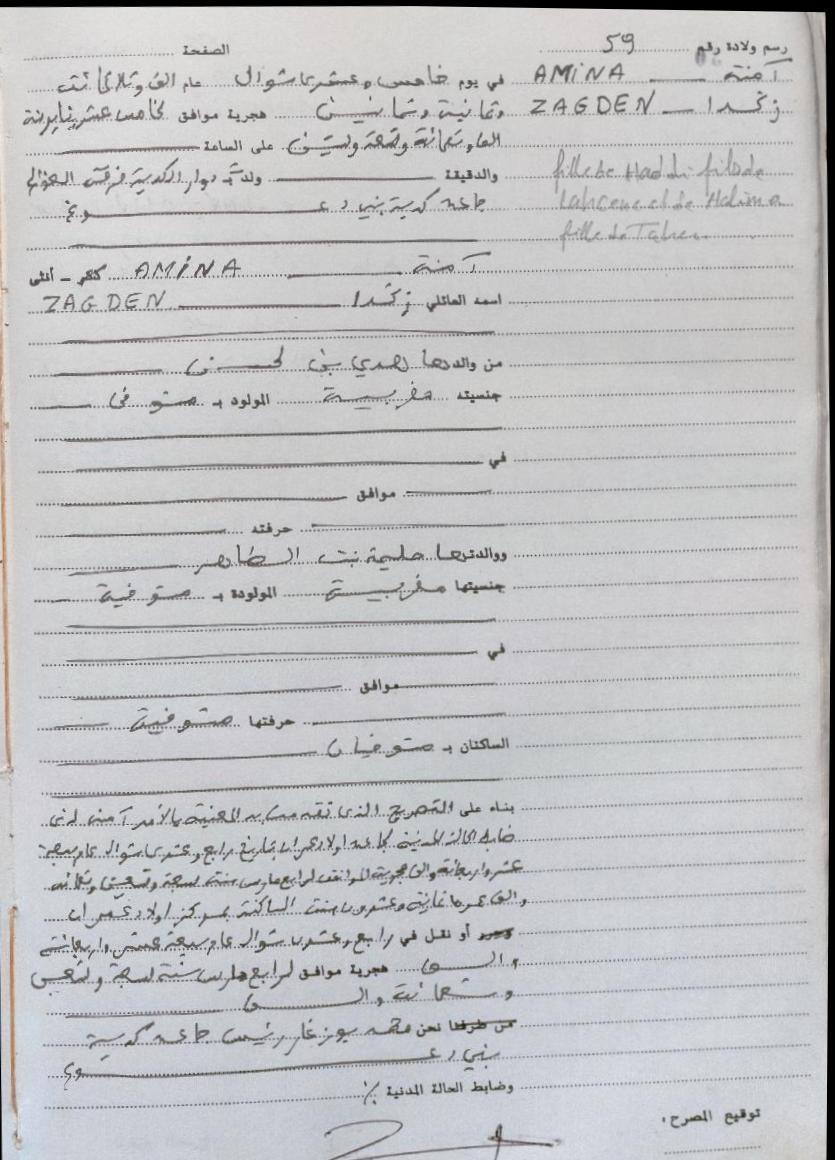 رسم ولادة رقم 59 الصفحة
آمنة AMINA
زگدا ZAGDEN
fille de Haddi fils de
Lahcene et de Halima
fille de Taher
في يوم خامس وعشرين شوال عام الف وثلاثمائة
وثمانية وثمانين هجرية موافق خامس عشر يناير سنة
الف وتسعمائة وتسعة وستين على الساعة
والدقيقة ولدت بـ دوار الكدية فرقة
جماعة كدية بني دغوغ
آمنة AMINA ذكر - أنثى
اسمه العائلي زگدا ZAGDEN
من والدها هدي بن لحسن
جنسيته مغربية المولود بـ متوفى
في
موافق
حرفته
ووالدتها حليمة بنت الطاهر
جنسيتها مغربية المولودة بـ متوفية
في
موافق
حرفتها متوفية
الساكنان بـ متوفيان
بناء على التصريح الذي تقدمت به المعنية بالأمر آمنة لدى
ضابط الحالة المدنية لجماعة اولاد عمران بتاريخ رابع وعشرين شوال عام سبعة
عشر واربعمائة والف هجرية الموافق لرابع مارس سنة تسعة وتسعين
والف عمرها ثمانية وعشرون سنة الساكنة بمركز اولاد عمران
حرر أو نقل في رابع وعشرين شوال عام سبعة عشر واربعمائة
والف هجرية موافق لرابع مارس سنة تسعة وتسعين
وتسعمائة والف
من طرفنا نحن محمد بوزغار رئيس جماعة كدية
بني دغوغ
وضابط الحالة المدنية
توقيع المصرح،